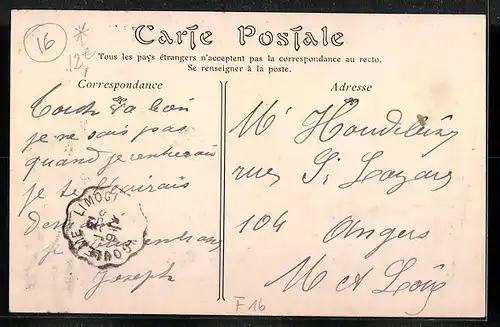 16
12€
Carte Postale
Tous les pays étrangers n'acceptent pas la correspondance au recto.
Se renseigner à la poste.
Correspondance
Adresse
va bien
je ne sais pas
quand je rentrerai
je te
Joseph
LIMOGES
Mr
rue St Lazare
104
Angers
M et Loire
F16